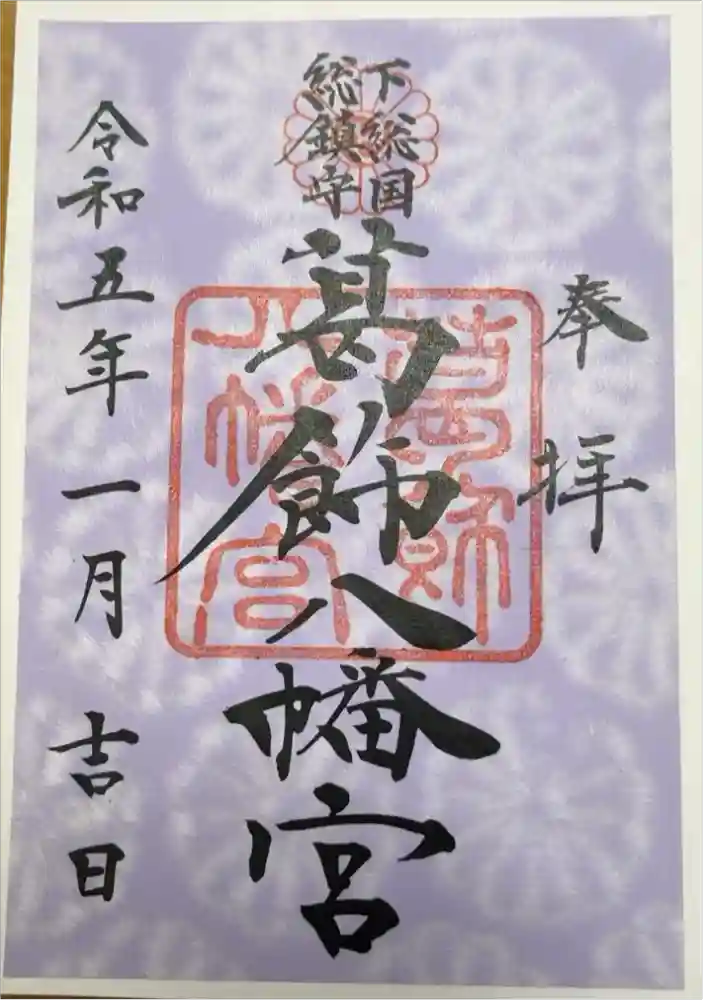 奉拝
下総国
総鎮守
葛飾八幡宮
葛飾
八幡宮
令和五年一月吉日